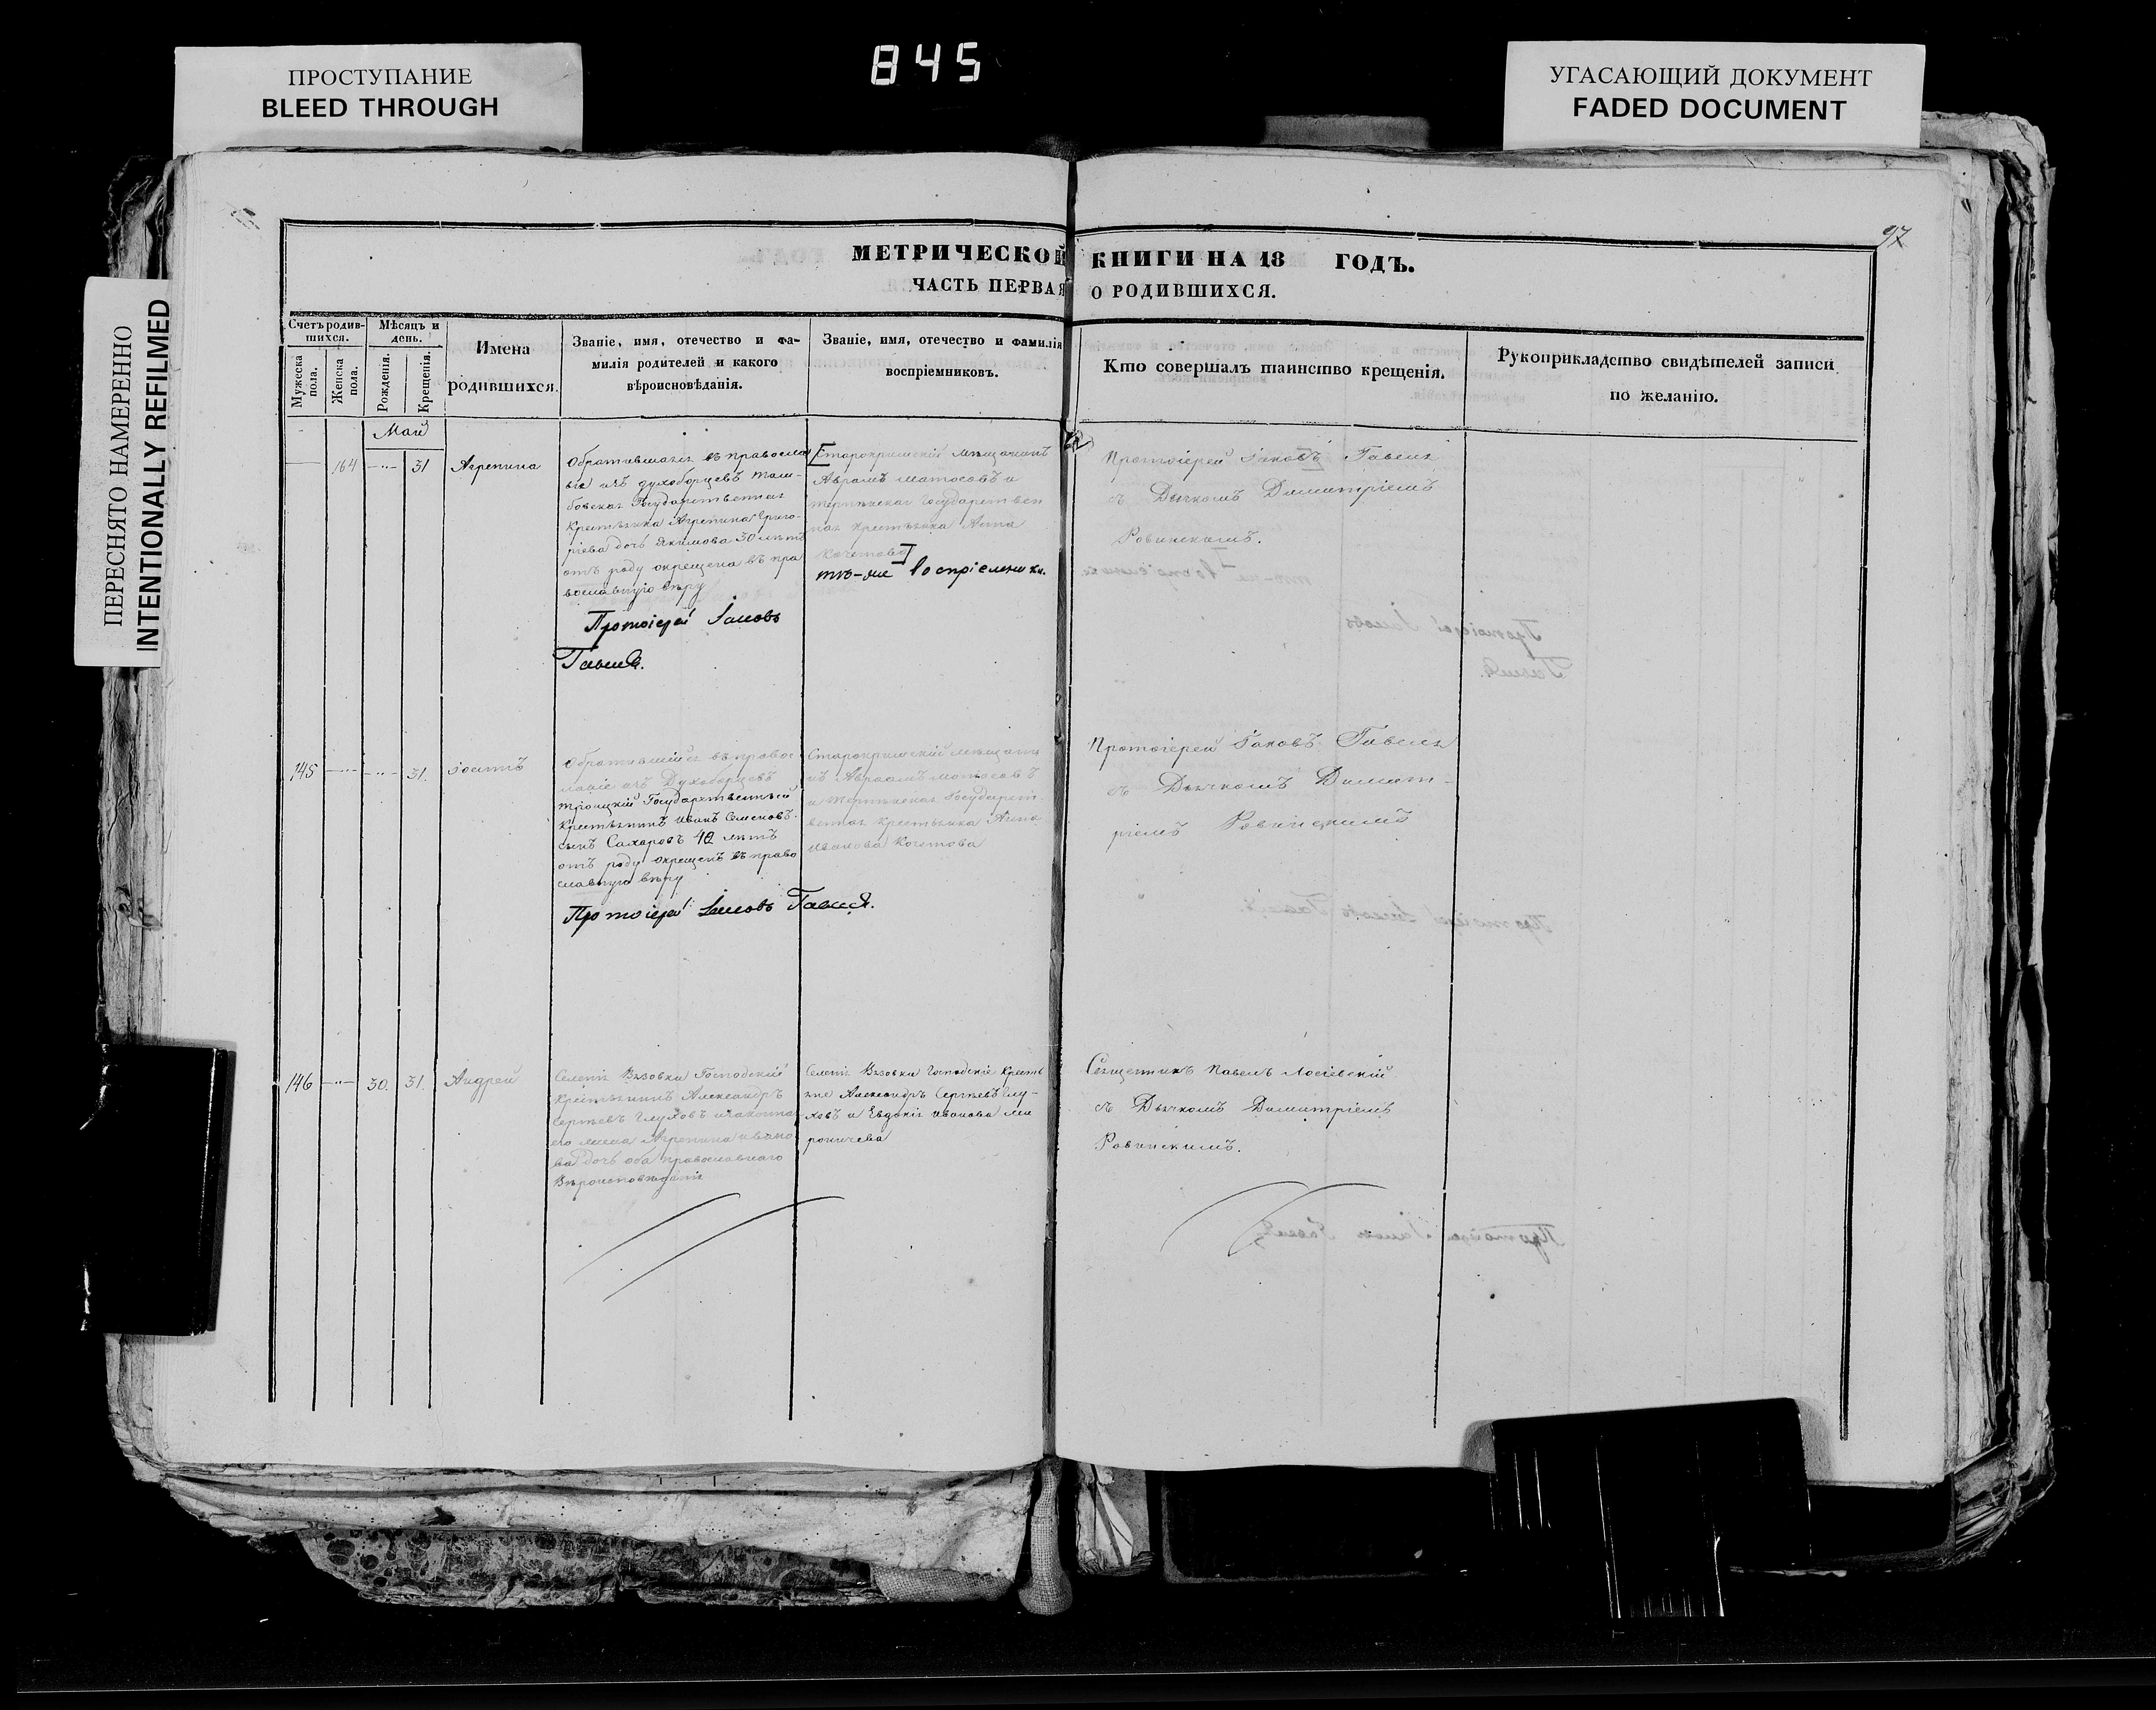 845
ПРОСТУПАНИЕ
BLEED THROUGH
УГАСАЮЩИЙ ДОКУМЕНТ
FADED DOCUMENT
ПЕРЕСНЯТО НАМЕРЕННО
INTENTIONALLY REFILMED
97
МЕТРИЧЕСКОЙ КНИГИ НА 18 ГОДЪ.
ЧАСТЬ ПЕРВАЯ О РОДИВШИХСЯ.
Счетъ родив-
шихся.
Мужеска
пола.
Женска
пола.
Мѣсяцъ и
день.
Рожденія.
Крещенія.
Имена
родившихся.
Званіе, имя, отечество и фа-
милія родителей и какого
вѣроисновѣданія.
Званіе, имя, отечество и фамилія
воспріемниковъ.
Кто совершалъ таинство крещенія.
Рукоприкладство свидѣтелей записи
по желанію.
Май
164 31 Агрепина
Обратившаяся въ правосла
віе изъ духоборцевъ Там-
бовская Государственная
Крестьянка Агрепина Григо-
ріева дочь Якимова 30 лѣтъ
отъ роду окрещена въ пра
вославную вѣру
Протоіерей Іаковъ
Гавшя.
Старокримскій мѣщанинъ
Аврамъ Матосовъ и
Терпѣнская Государствен
ная крестьянка Анна
Кочетова
тѣ-же воспріемники.
Протоіерей Іаковъ
съ Дьячкомъ Димитріемъ
Ровинскимъ.
145 31. Іосифъ
Обратившійся въ правос-
лавіе изъ Духоборцевъ
Троицкій Государственный
Крестьянинъ Иванъ Семеновъ
сынъ Сахаровъ 40 лѣтъ
отъ роду окрещенъ въ право
славную вѣру
Протоіерей Іаковъ
Старокримскій мѣщани
нъ Авраамъ Матосовъ
и Терпѣнская Государст
венная крестьянка Анна
Иванова Кочетова
Протоіерей Іаковъ
съ Дьячкомъ Димит-
ріемъ Ровинскимъ
146 30. 31. Андрей
Селенія Вязовки Господскій
Крестьянинъ Александръ
Сергѣевъ Глуховъ и законная
его жена Агрепина Ивано
ва дочь оба православнаго
Вѣроисповѣданія
Селенія Вязовки Господскіе Кресть
яне Александръ Сергѣевъ Глу-
ховъ и Евдокія Иванова Ми
роничева
Священникъ Павелъ Лосіевскій
съ Дьячкомъ Димитріемъ
Ровинскимъ.